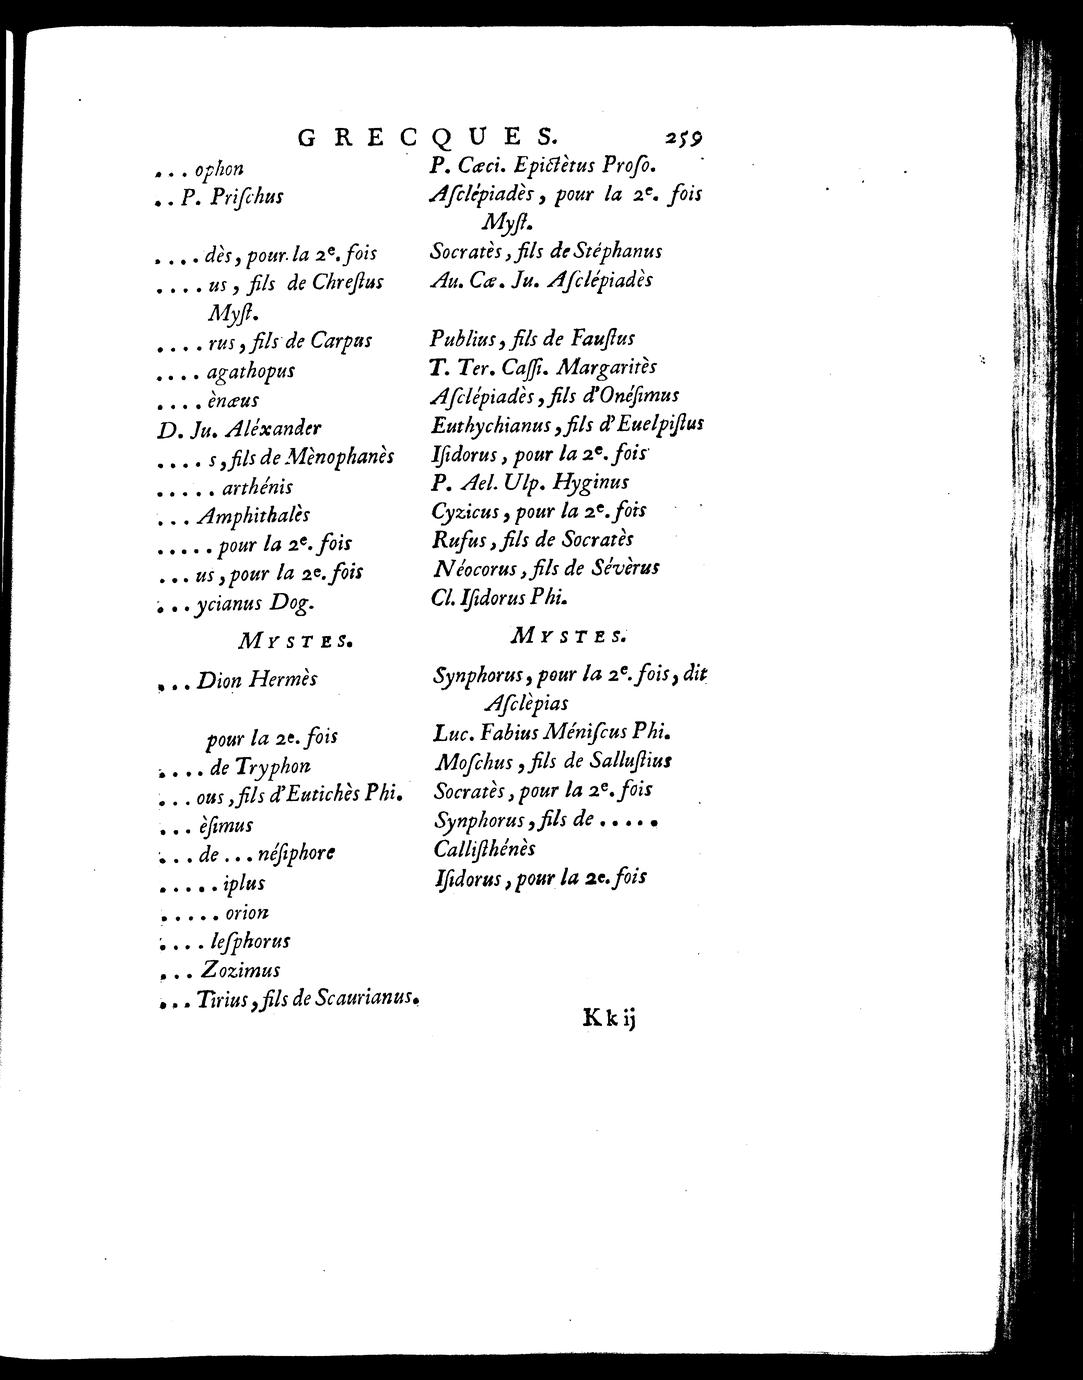 GRECQUES. 259
... ophon
.. P. Priſchus
.... dès, pour la 2e. fois
.... us, fils de Chreſtus
Myſt.
.... rus, fils de Carpus
.... agathopus
.... ènæus
D. Ju. Aléxander
.... s, fils de Mènophanès
..... arthénis
... Amphithalès
..... pour la 2e. fois
... us, pour la 2e. fois
... ycianus Dog.
MYSTES.
... Dion Hermès
pour la 2e. fois
.... de Tryphon
... ous, fils d'Eutichès Phi.
... èſimus
... de ... néſiphore
..... iplus
..... orion
.... leſphorus
... Zozimus
... Tirius, fils de Scaurianus.
P. Cæci. Epictètus Proſo.
Aſclépiadès, pour la 2e. fois
Myſt.
Socratès, fils de Stéphanus
Au. Cæ. Ju. Aſclépiadès
Publius, fils de Fauſtus
T. Ter. Caſſi. Margaritès
Aſclépiadès, fils d'Onéſimus
Euthychianus, fils d'Euelpiſtus
Iſidorus, pour la 2e. fois
P. Ael. Ulp. Hyginus
Cyzicus, pour la 2e. fois
Rufus, fils de Socratès
Néocorus, fils de Sévèrus
Cl. Iſidorus Phi.
MYSTES.
Synphorus, pour la 2e. fois, dit
Aſclèpias
Luc. Fabius Méniſcus Phi.
Moſchus, fils de Salluſtius
Socratès, pour la 2e. fois
Synphorus, fils de .....
Calliſthénès
Iſidorus, pour la 2e. fois
Kkij